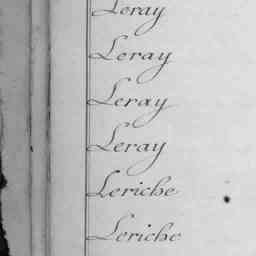 Leray
Leray
Leray
Leray
Leriche
Leriche